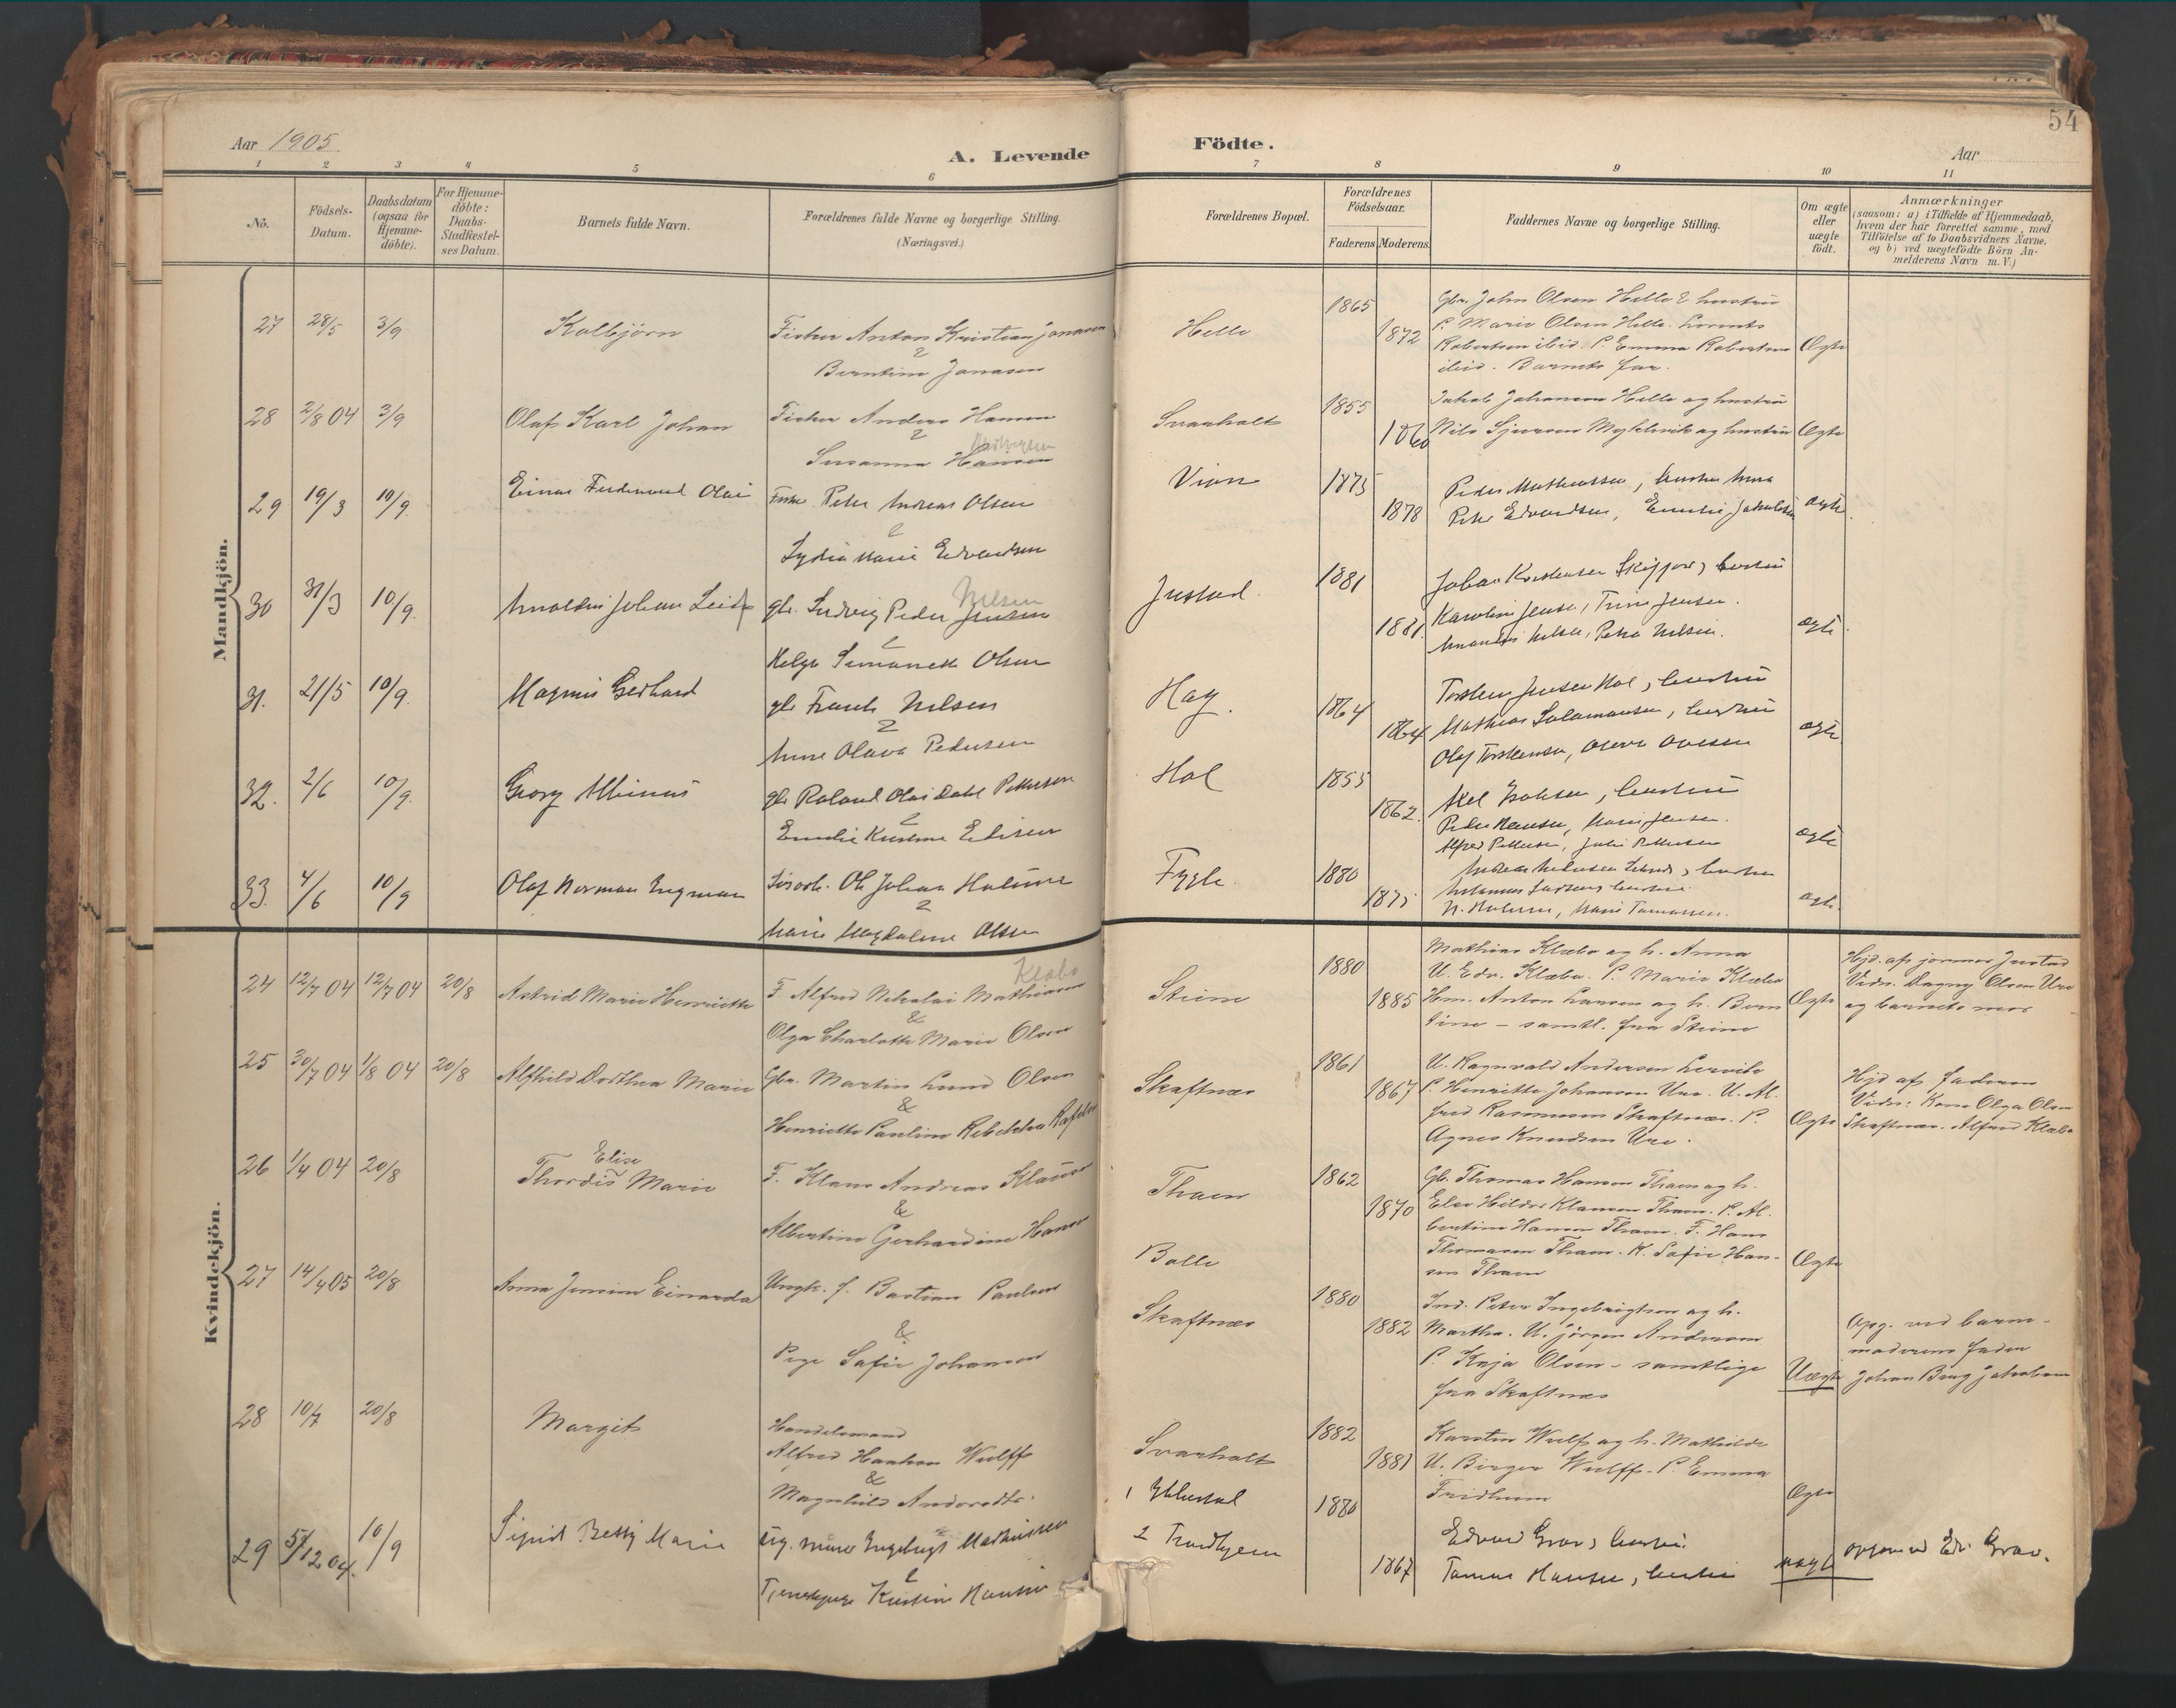 54
Aar 1905
A. Levende
Födte.
Aar
1 2 3 4 5 6 7 8 9 10 11
Nö.
Födsels-
Datum.
Daabsdatum
(ogsaa for
Hjemme-
döbte).
For Hjemme-
döbte:
Daabs-
Stadfæstel-
ses Datum.
Barnets fulde Navn.
Forældrenes fulde Navne og borgerlige Stilling.
(Næringsvei.)
Forældrenes Bopæl.
Forældrenes
Födselsaar.
Faderens
Moderens.
Faddernes Navne og borgerlige Stilling.
Om ægte
eller
uægte
födt.
Anmærkninger
(saasom: a) i Tilfælde af Hjemmedaab,
hvem der har forrettet samme, med
Tilföielse af to Daabsvidners Navne,
og b) ved uægtefödte Börn An-
melderens Navn m. V.)
Mandkjön.
27 28/5 3/9 Kolbjörn
Fisker Anton Kristian Jonasen
&
Berntine Jonasen
Helle
1865
1872
Gbr. John Olsen Helle & hustru
P. Marie Olsen Helle. Lorents
Robertsen ibid. P. Emma Robertsen
ibid. Barnets far.
Ægte
28 2/8 04 3/9 Olaf Karl Johan
Fisker Anders Hansen
&
Susanna Hansen
Svarholt
1855
1860
Jakob Johansen Helle og hustru
Nils Sjursen Myklevik og hustru
Ægte
29 19/3 10/9 Einar Ferdinand Olai
Fisker Peter Andreas Olsen
&
Lydia Marie Edvardsen
Vian
1875
1878
Peder Mathiassen, hustru Anna
Peter Edvardsen, Emilie Jakobsen
ægte
30 31/3 10/9 Arnoldus Johan Leif
gbr. Ludvig Peder Jensen
Nilsen
&
Helga Simonette Olsen
Justad
1881
1881
Johan Kristensen Skifjord, hustru
Karoline Jensen, Trine Jensen.
Amandus Nilsen, Petra Nilsen.
ægte
31. 21/5 10/9 Magnus Gerhard
gbr Frants Nilsen
&
Anne Olava Pedersen
Hag.
1864
1864
Torsten Jensen Hol, hustru
Mathias Salamonsen, hustru
Olaf Torstensen, Olava Olsen
ægte
32. 2/6 10/9 Georg Albinus
gbr Roland Olai Dahl Pettersen
&
Emelie Kristine Elisen
Hol
1855
1862.
Axel Isaksen, hustru
Peder Hansen, Marie Jensen.
Alfred Pettersen, Julie Pettersen
ægte
33. 4/6 10/9 Olaf Norman Ingman
Ole Johan
&
Marie Magdalene Olsen
Fygle.
1880
1875
Marie Tomassen.
ægte
Kvindekjön.
24 12/7 04 12/7 04 20/8 Astrid Marie Henriette
F. Alfred Nikolai Mathisen
Klæbo
&
Olga Charlotte Marie Olsen
Steine
1880
1885
Mathias Klæbo og h. Anna
U. Edv. Klæbo. P. Marie Klæbo
Hm. Anton Larsen og h. Bern
tine – samtl. fra Steine
Ægte
Hjd. af jormor Justad
Vidn. Dagny Olsen Ure
og barnets mor
25 30/7 04 1/8 04 20/8 Alfhild Dorthea Marie
Gbr. Martin Lund Olsen
&
Henriette Pauline Rebekka Rafelsen
Skaftnæs
1861
1867
U. Ragnvald Andersen Lervik
P. Henriette Johansen Ure. U. Al.
fred Rasmussen Skaftnæs. P.
Agnes Knudsen Ure.
Ægte
Hjd af faderen
Vidn: Kone Olga Olsen
Skaftnæs. Alfred Klæbo
26 1/4 04 20/8
Elise
Thordis Marie
F. Klaus Andreas Klausen
&
Albertine Gerhardine Hansen
Tharn
1862
1870
Gb. Thomas Hansen Tharn og h.
Else Hilda Klausen Tharn. P. Al.
bertine Hansen Tharn. F. Hans
Thomassen Tharn. K. Safie Han-
sen Tharn
Ægte
27 14/4 05 20/8 Anna Jensine Einarda
Ungk. f. Bastian Paulsen
&
Pige Safie Johansen
Balle
Skaftnæs
1880
1882
Ind. Peter Ingebrigtsen og h.
Martha. U. Jörgen Andersen
P. Kaja Olsen – samtlige
fra Skaftnæs
Uægte
Opg. ved barne-
moderens fader
Johan Berg Jakobsen
28 10/7 20/8 Margit
Handelsmand
Alfred Haakon Wulff
&
Magnhild
Svarholt
1882
1881
Karsten Wulff og h. Mathilde
U. Birger Wulff. P. Emma
Fridheim
Ægte
29 5/12 04. 10/9 Sigrid Betty Marie
Ug. murer Engebrigt Mathisen
&
Tjenestepige Kristine Hansen
1
2 Trondhjem
1880
1867
Edvard Grav, hustru.
Tomas Hansen, hustru
uægte
opgivet ved Edv. Grav.